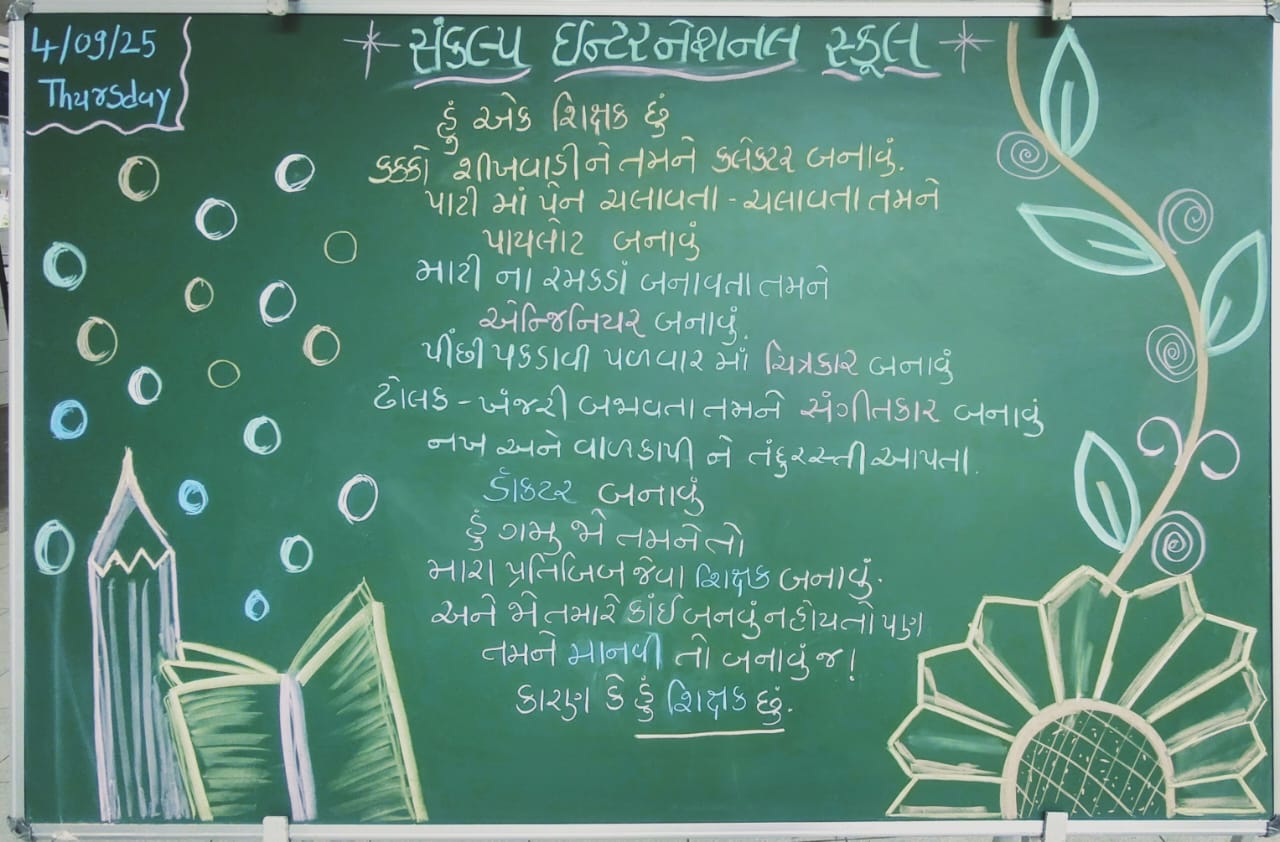 4/09/25
Thursday
સંકલ્પ ઇન્ટરનેશનલ સ્કૂલ
હું એક શિક્ષક છું
કક્કો શીખવાડીને તમને કલેકટર બનાવું.
પાટી માં પેન ચલાવતા - ચલાવતા તમને
પાયલોટ બનાવું
માટી ના રમકડાં બનાવતા તમને
એન્જિનિયર બનાવું.
પીંછી પકડાવી પળવાર માં ચિત્રકાર બનાવું
ઢોલક - ખંજરી બજવતા તમને સંગીતકાર બનાવું
નખ અને વાળ કાપી ને તંદુરસ્તી આપતા.
ડૉકટર બનાવું
હું ગમુ જો તમને તો
મારા પ્રતિબિંબ જેવા શિક્ષક બનાવું.
અને જો તમારે કાંઈ બનવું ન હોય તો પણ
તમને માનવી તો બનાવું જ!
કારણ કે હું શિક્ષક છું.